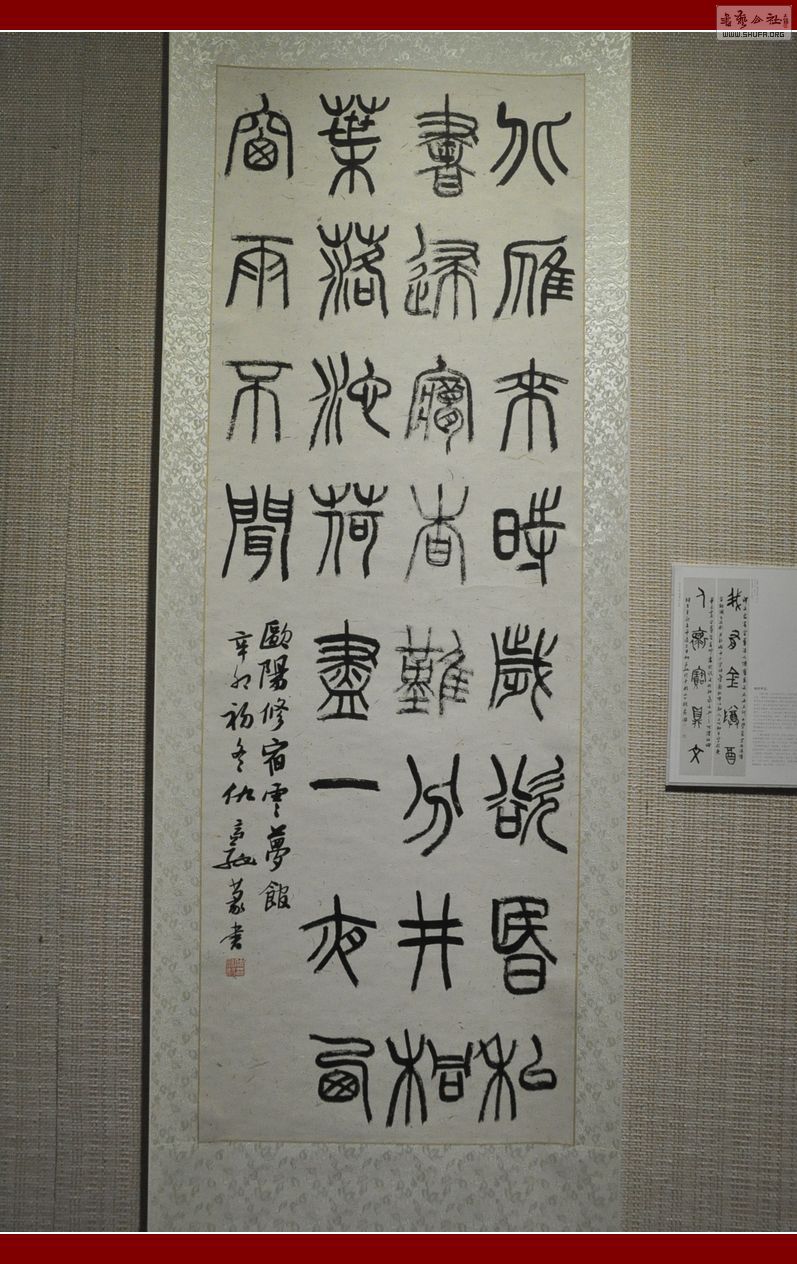 書藝公社
WWW.SHUFA.ORG
北雁來時歲欲昏私
書歸夢杳難分井桐
葉落池荷盡一夜西
窗雨不聞
歐陽修宿雲夢館
辛卯初冬仇高馳篆書